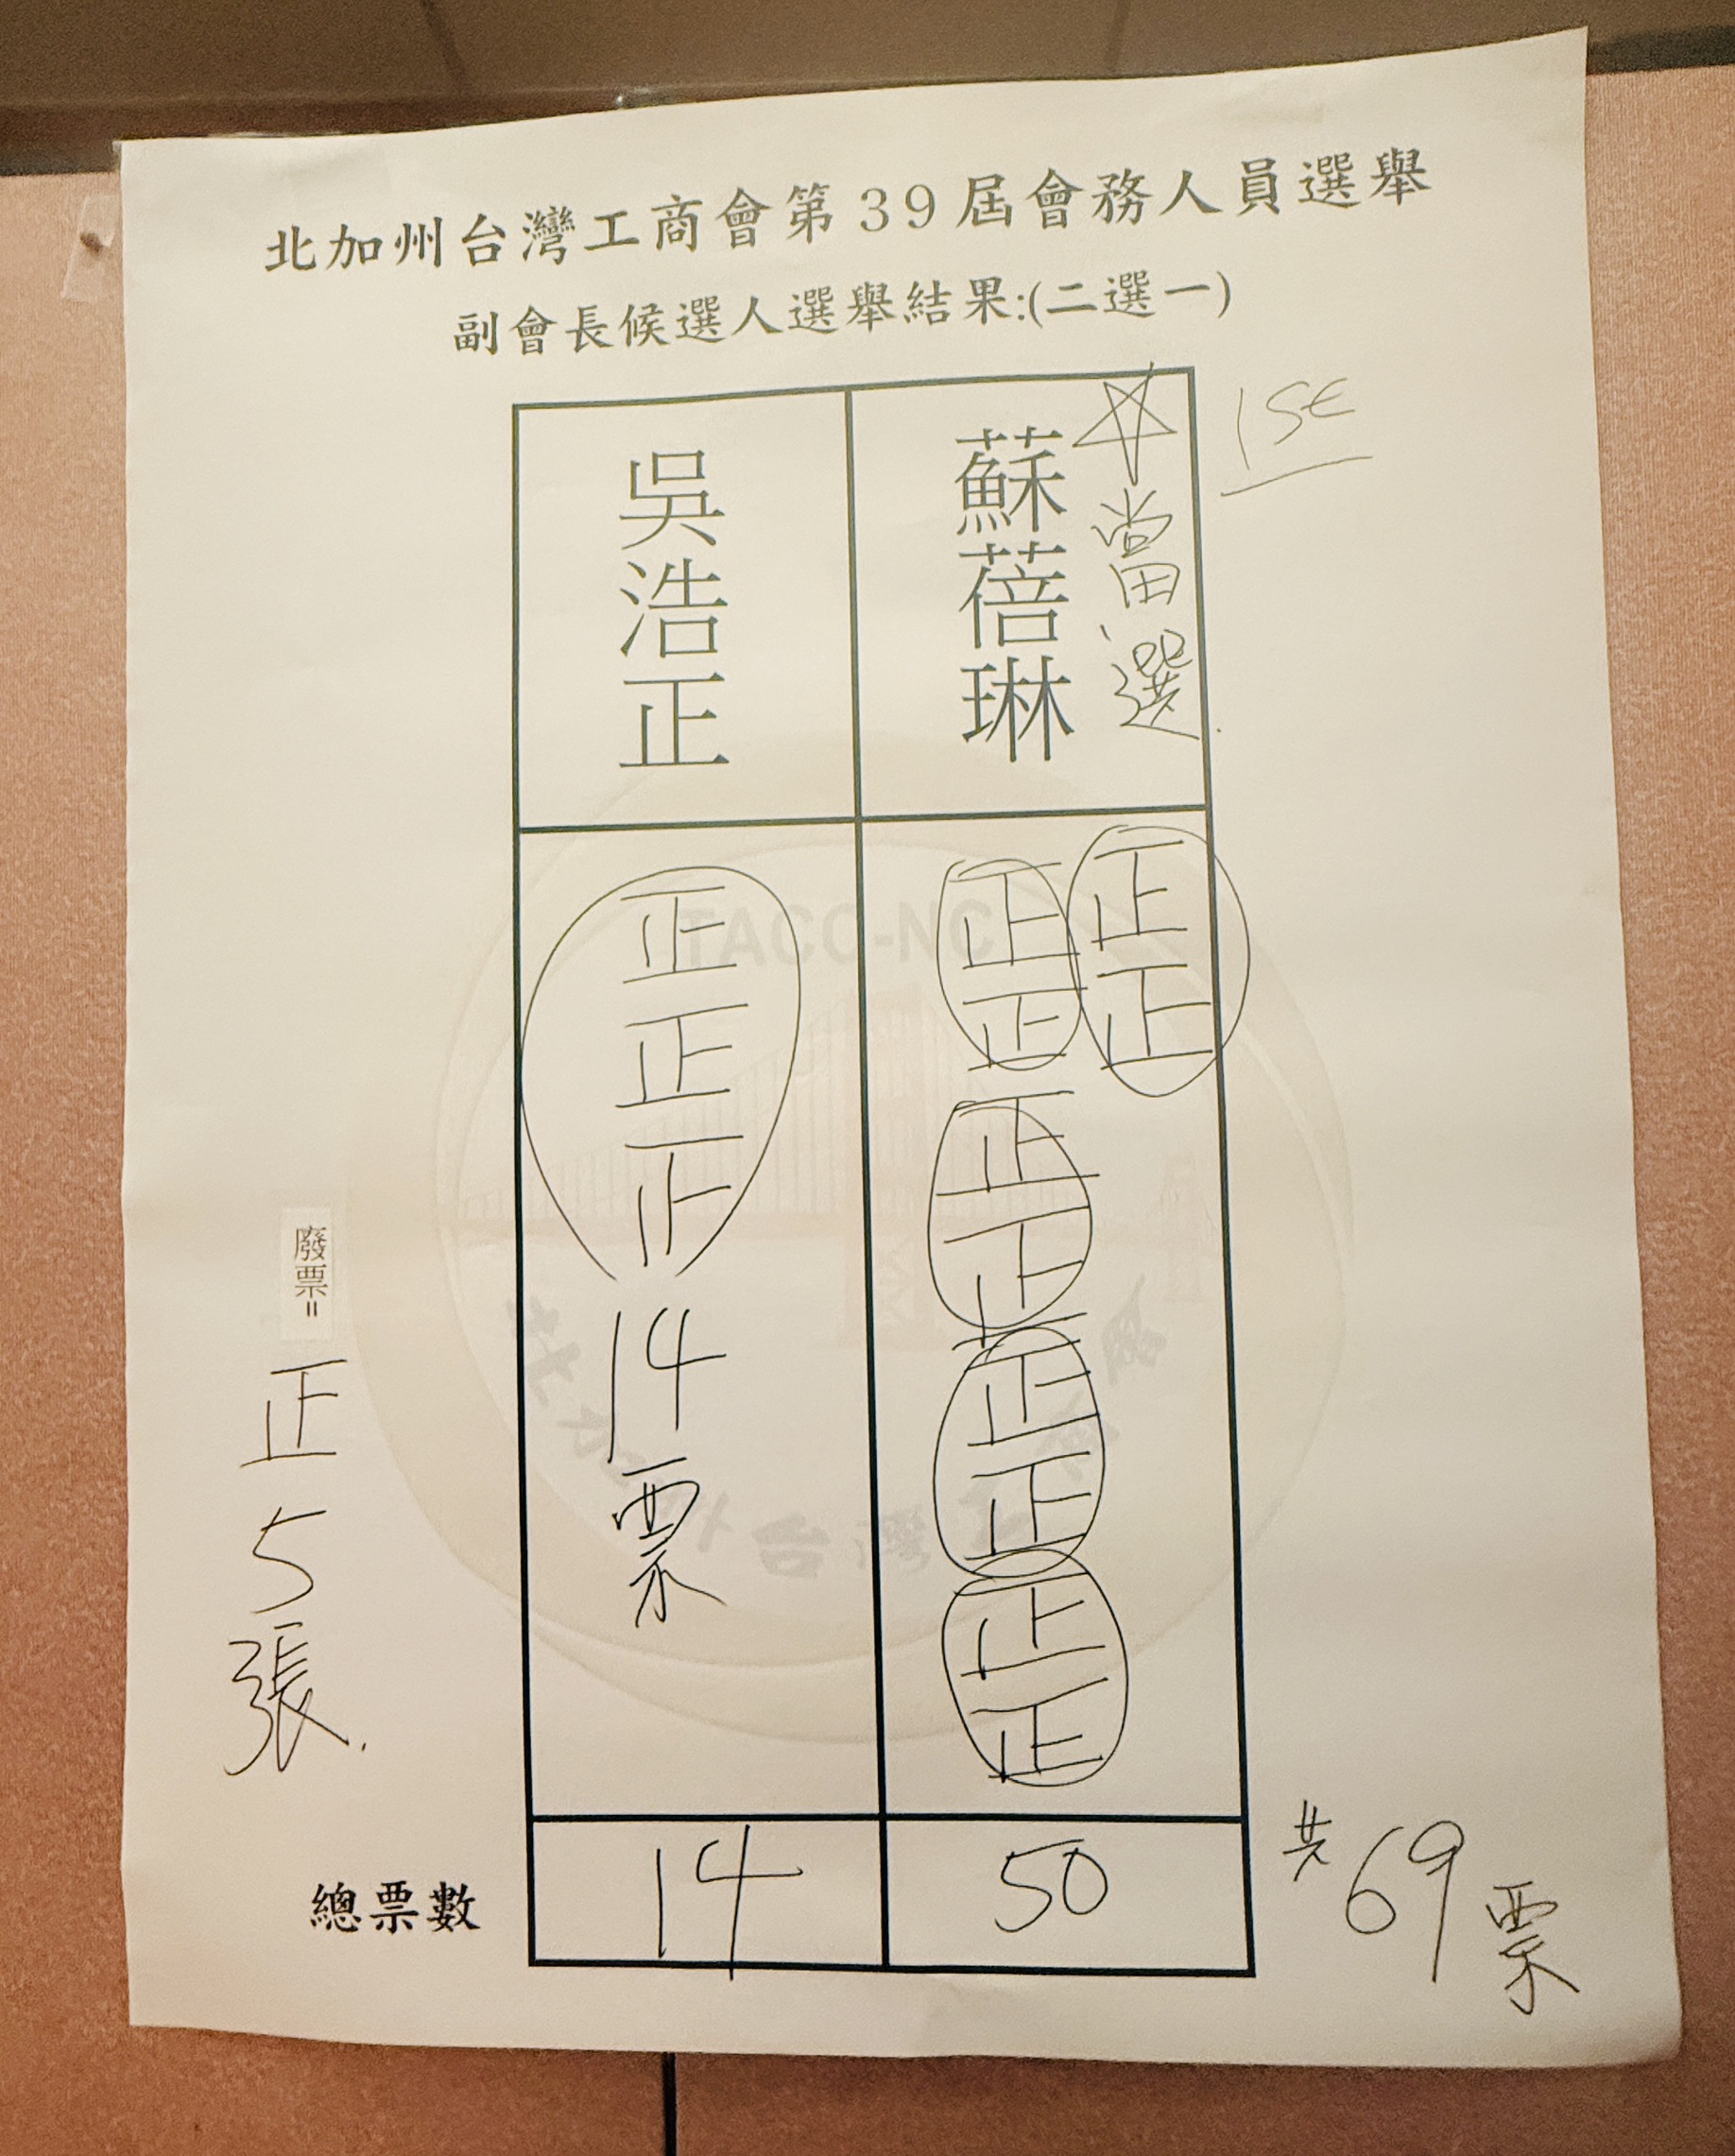 北加州台灣工商會第39屆會務人員選舉
副會長候選人選舉結果:(二選一)
吳浩正
蘇蓓琳
當選
正正正
14票
正正
正正
正正
正正
正正
TACC-NC
台灣
廢票=
正
5張.
總票數
14
50
共69票